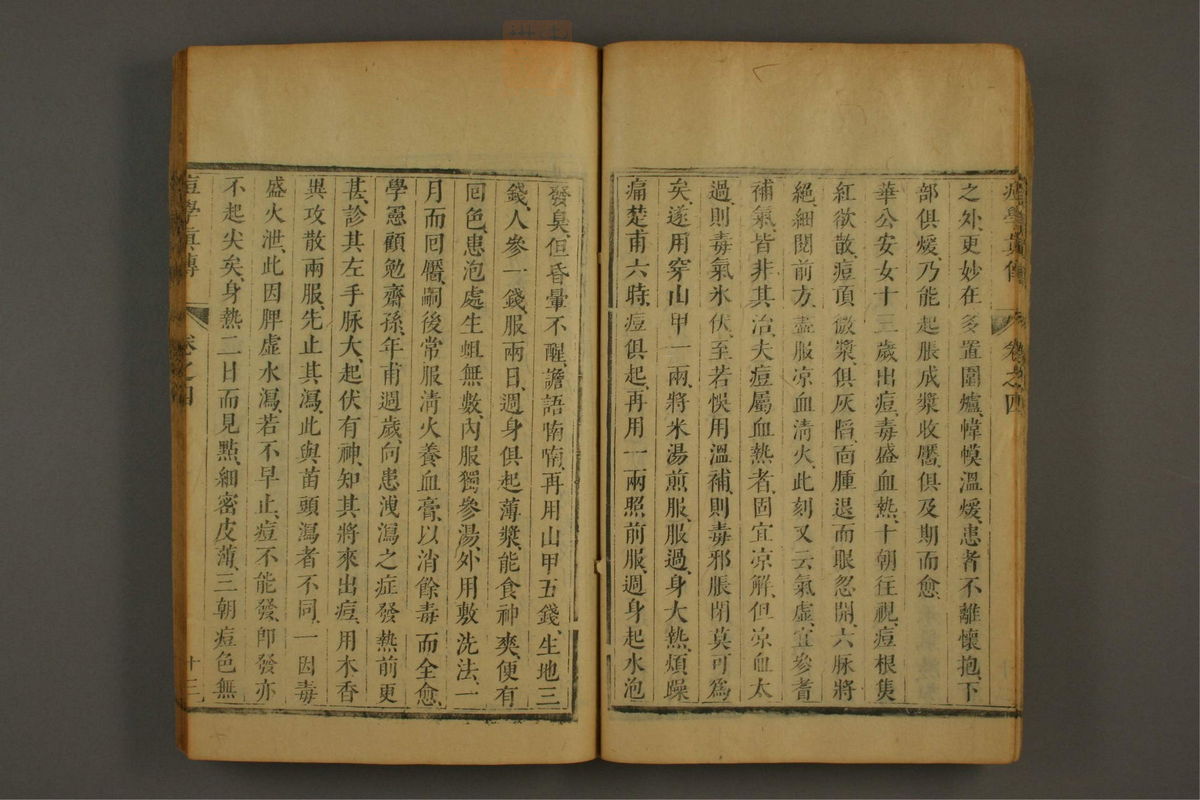 痘學眞傳 卷之四
之外、更妙在多置圍爐、幃幙溫煖、患者不離懷抱、下
部俱煖、乃能起脹成漿收靨、俱及期而愈、
華公安女十三歲出痘、毒盛血熱、十朝往視、痘根隻
紅欲散、痘頂微漿、俱灰䧟、面腫退而眼忽開、六脉將
絕、細閱前方、盡服凉血清火、此刻又云氣虛、宜參耆
補氣、皆非其治、夫痘屬血熱者、固宜凉解、但凉血太
過、則毒氣氷伏、至若悞用溫補、則毒邪脹閉、莫可爲
矣、遂用穿山甲一兩、將米湯煎服、服過、身大熱、煩躁
痛楚、甫六時、痘俱起、再用一兩照前服、週身起水泡
發臭、但昏暈不醒、譫語喃喃、再用山甲五錢、生地三
錢、人參一錢、服兩日、週身俱起薄漿、能食神爽、便有
囘色、患泡處生蛆無數、內服獨參湯、外用敷洗法、一
月而囘靨、嗣後常服清火養血膏、以消餘毒而全愈、
學憲顧勉齋孫、年甫週歲、向患洩瀉之症、發熱前更
甚、診其左手脉大、起伏有神、知其將來出痘、用木香
異攻散兩服、先止其瀉、此與苗頭瀉者不同、一因毒
盛火泄、此因脾虛水瀉、若不早止、痘不能發、卽發亦
不起尖矣、身熱二日而見㸃、細密皮薄、三朝痘色無
痘學眞傳 卷之四 十三